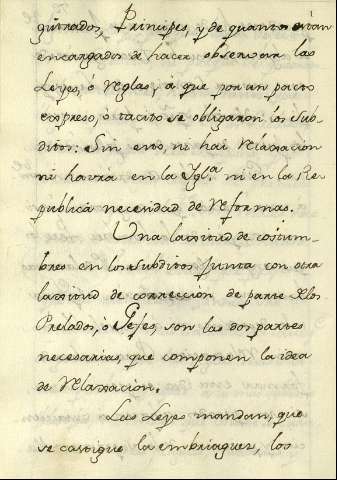 gistrados, Principes, y de quantos están
encargados de hacer observar las
Leyes, ó Reglas, á que por un pacto
expreso, ó tacito se obligaron los Sub-
ditos: Sin esto, ni hai Relaxación
ni havra en la Igl.ª ni en la Re-
publica necesidad de Reformas.
Una laxitud de costum-
bres en los Subditos junta con otra
laxitud de corrección de parte de los
Prelados, ó Gefes, son las dos partes
necesarias, que componen la idea
de Relaxacion.
Las Leyes mandan, que
se castigue la embriaguez, los